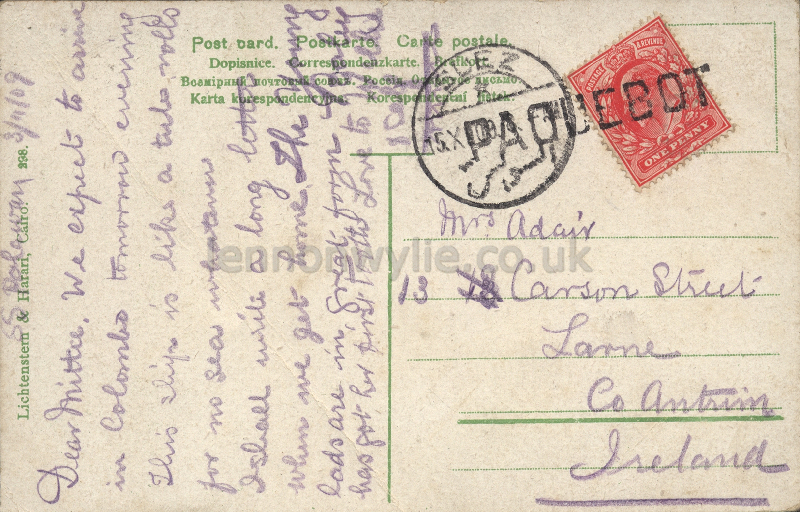 Post card. Postkarte. Carte postale.
Dopisnice. Correspondenzkarte. Brefkort.
Всемірный почтовый союзъ. Россія. Открытое письмо.
Karta korespondencyjna. Korespondenční lístek.
PAQUEBOT
15.X
ONE PENNY
& REVENUE
Mrs Adair
13 Carson Street
Larne
Co Antrim
Ireland
lennonwylie.co.uk
Lichtenstern & Harari, Cairo. 298.
SS
Dear Mittee. We expect to arrive
in Colombo tomorrow evening
This ship is like a tub rolls
for no sea whatever
I shall write a long letter
when we get home. The young
lads are in great form
has got her first tooth Love to